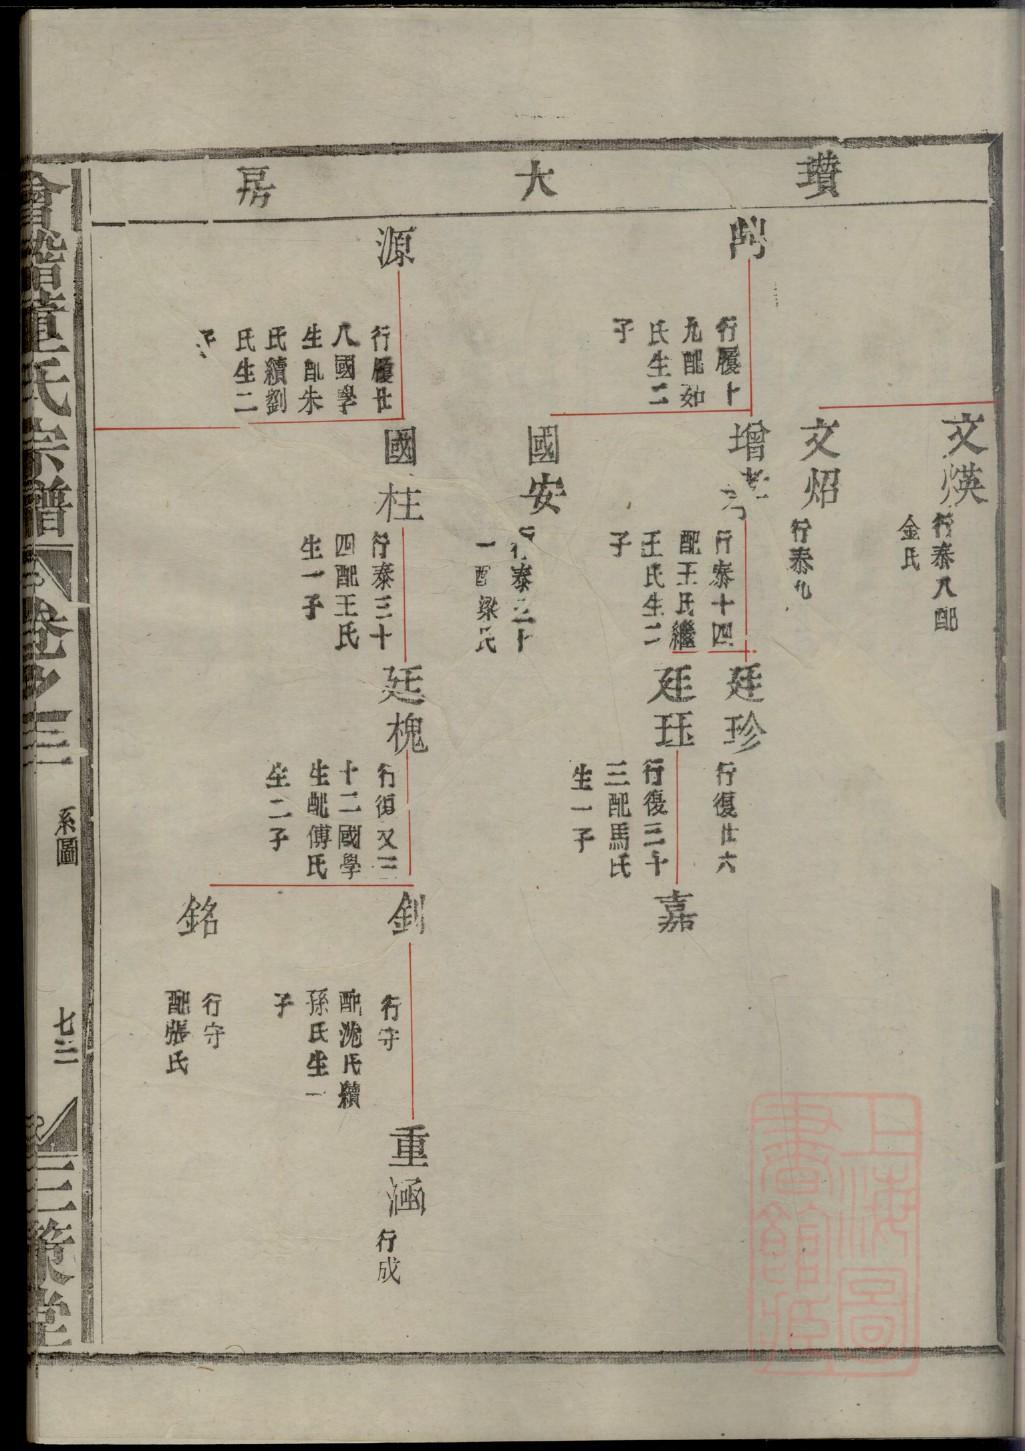 瓚大房
文煐
行泰八配
金氏
文炤
行泰九
行履十
九配如
氏生二
子
增
行泰十四
配王氏繼
王氏生二
子
國安
行泰二十
一配梁氏
廷珍
行復廿六
廷珏
行復三十
三配馬氏
生一子
嘉
源
行履廿
八國學
生配朱
氏續劉
氏生二
子
國柱
行泰三十
四配王氏
生一子
廷槐
行復又三
十二國學
生配傅氏
生二子
釗
行守
配沈氏續
孫氏生一
子
銘
行守
配張氏
重涵
行成
會稽董氏宗譜
卷之三
系圖
七三
三策堂
上海圖
書館臧